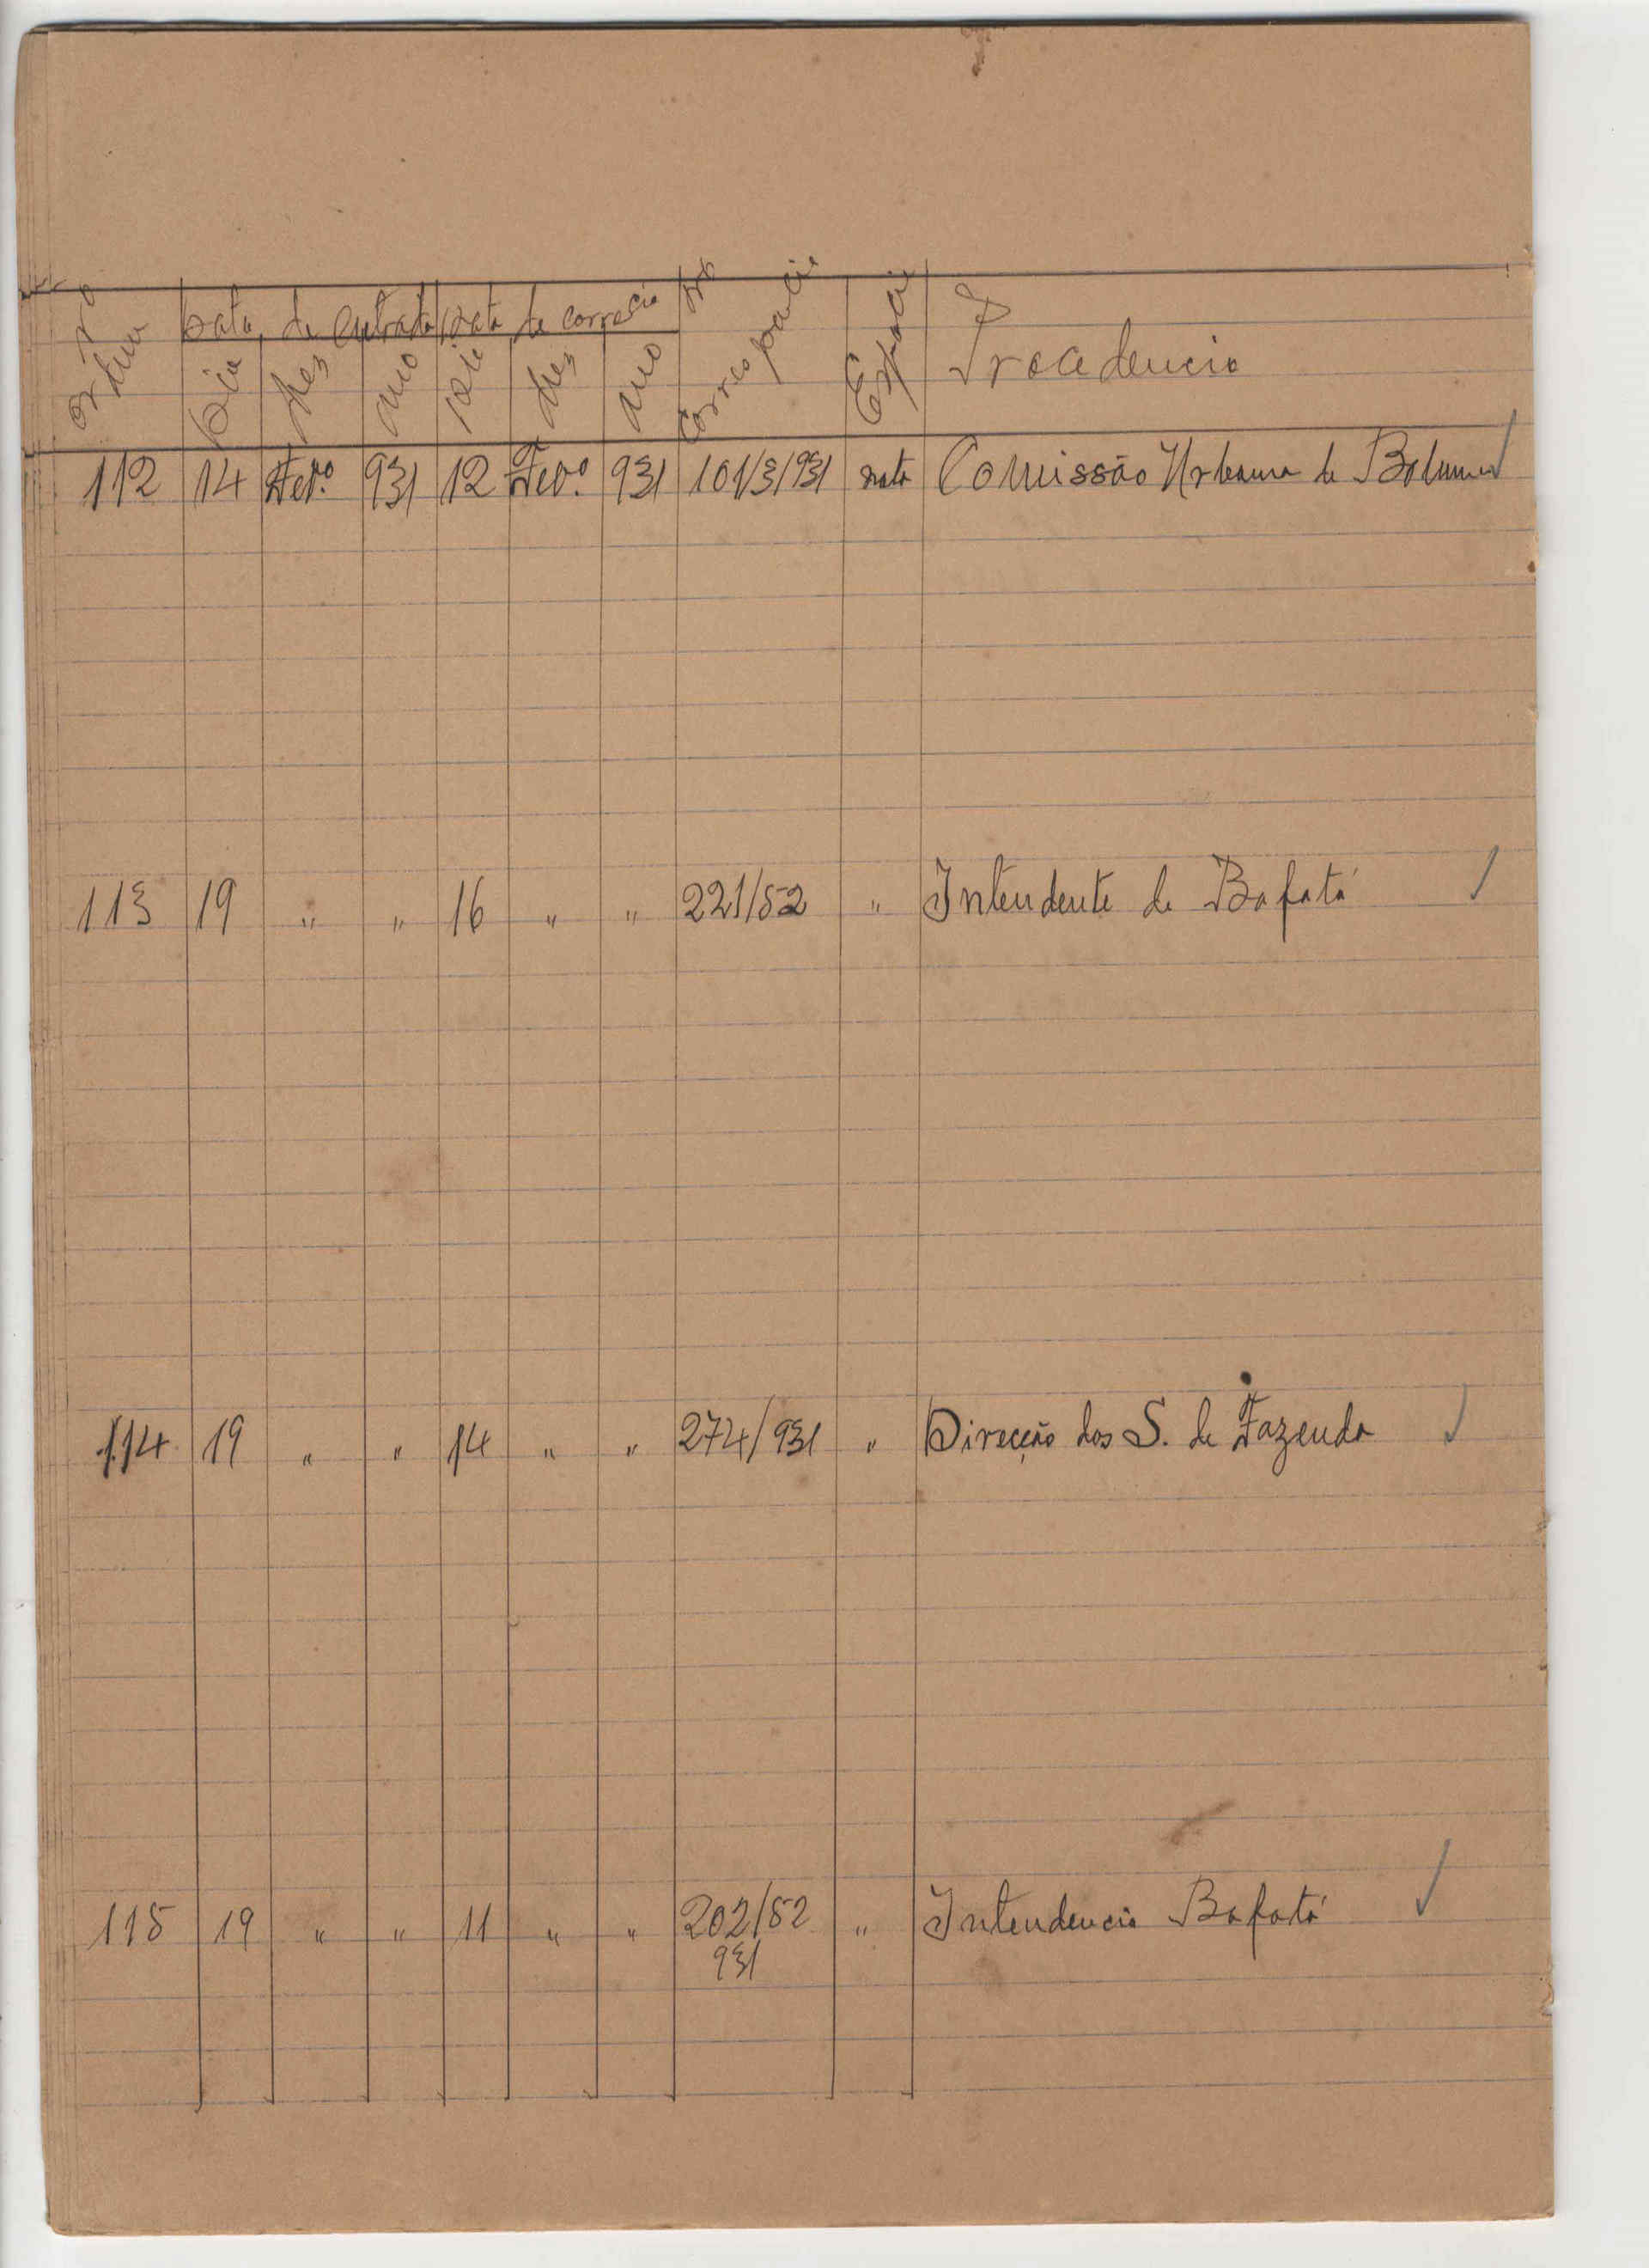 Nº Ordem Data de entrada Data de corres.cia Nº Corresponcia Especie Procedencia
Dia Mez Ano Dia Mez Ano
112 14 Fevº. 931 12 Fevº. 931 101/3/931 nota Comissão Urbana de Bolama
113 19 " " 16 " " 221/52 " Intendente de Bafatá
114 19 " " 14 " " 274/931 " Direcção dos S. de Fazenda
115 19 " " 11 " " 202/52 " Intendencia Bafatá
931